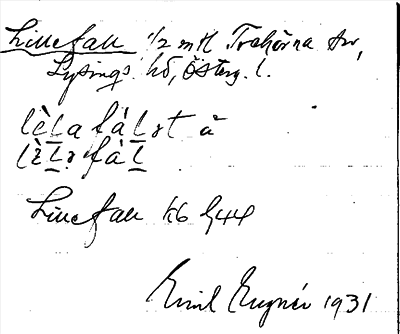 Lillefall 1/2 mtl Trehörna sn,
Lysings hd, Österg. l.
lèLa fáLət å
lèLə fáL
Lillefall Kb 1/44
Emil Eugnér 1931